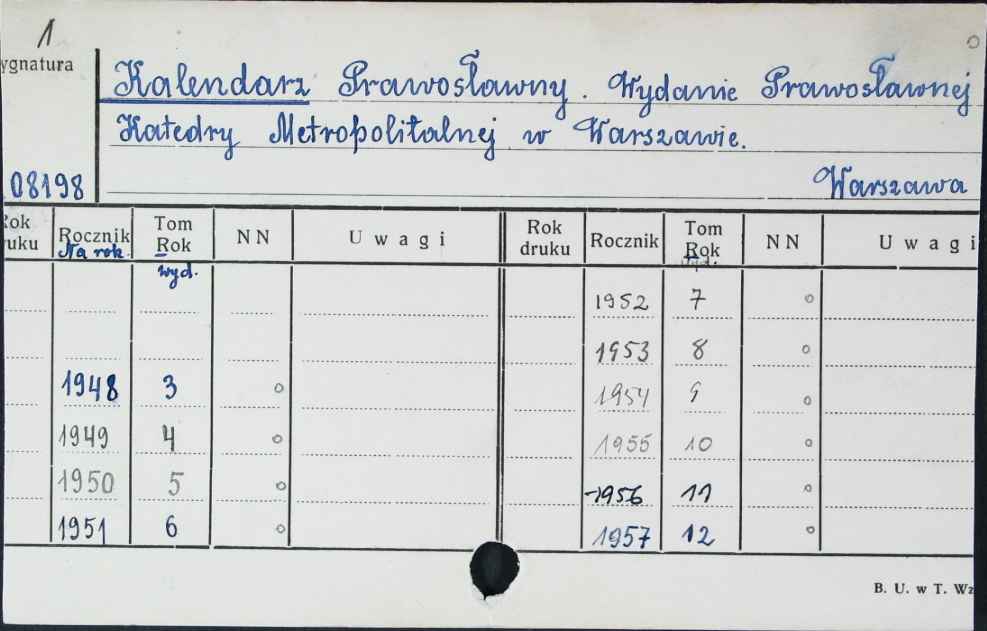 1
ygnatura
Kalendarz Prawosławny. Wydanie Prawosławnej
Katedry Metropolitalnej w Warszawie.
08198 Warszawa
Rok druku Rocznik Na rok. Tom Rok wyd. NN Uwagi Rok druku Rocznik Tom Rok wyd. NN Uwagi
1952 7 o
1953 8 o
1948 3 o 1954 9 o
1949 4 o 1955 10 o
1950 5 o 1956 11 o
1951 6 o 1957 12 o
B. U. w T. Wz